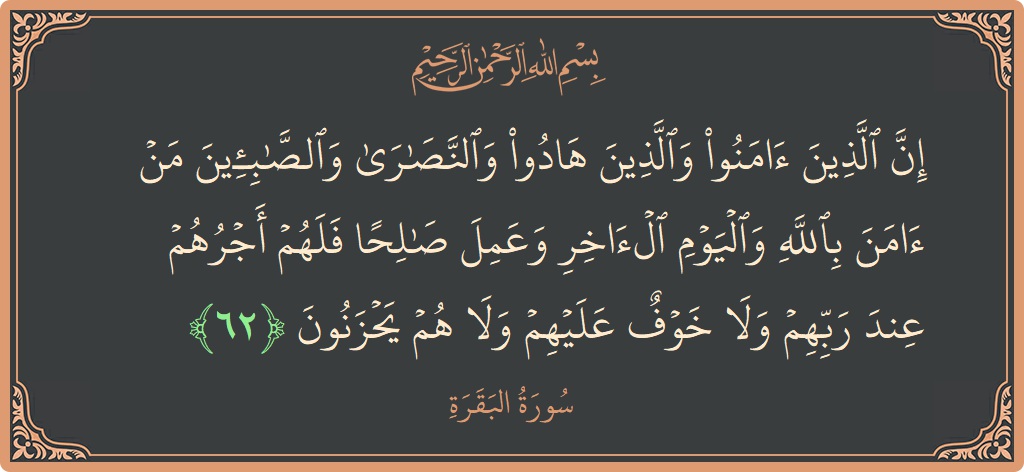 بِسْمِ اللهِ الرَّحْمٰنِ الرَّحِيْمِ
إِنَّ ٱلَّذِينَ ءَامَنُوا۟ وَٱلَّذِينَ هَادُوا۟ وَٱلنَّصَٰرَىٰ وَٱلصَّٰبِـِٔينَ مَنْ
ءَامَنَ بِٱللَّهِ وَٱلْيَوْمِ ٱلْءَاخِرِ وَعَمِلَ صَٰلِحًا فَلَهُمْ أَجْرُهُمْ
عِندَ رَبِّهِمْ وَلَا خَوْفٌ عَلَيْهِمْ وَلَا هُمْ يَحْزَنُونَ ﴿٦٢﴾
سُورَةُ البَقَرَةِ